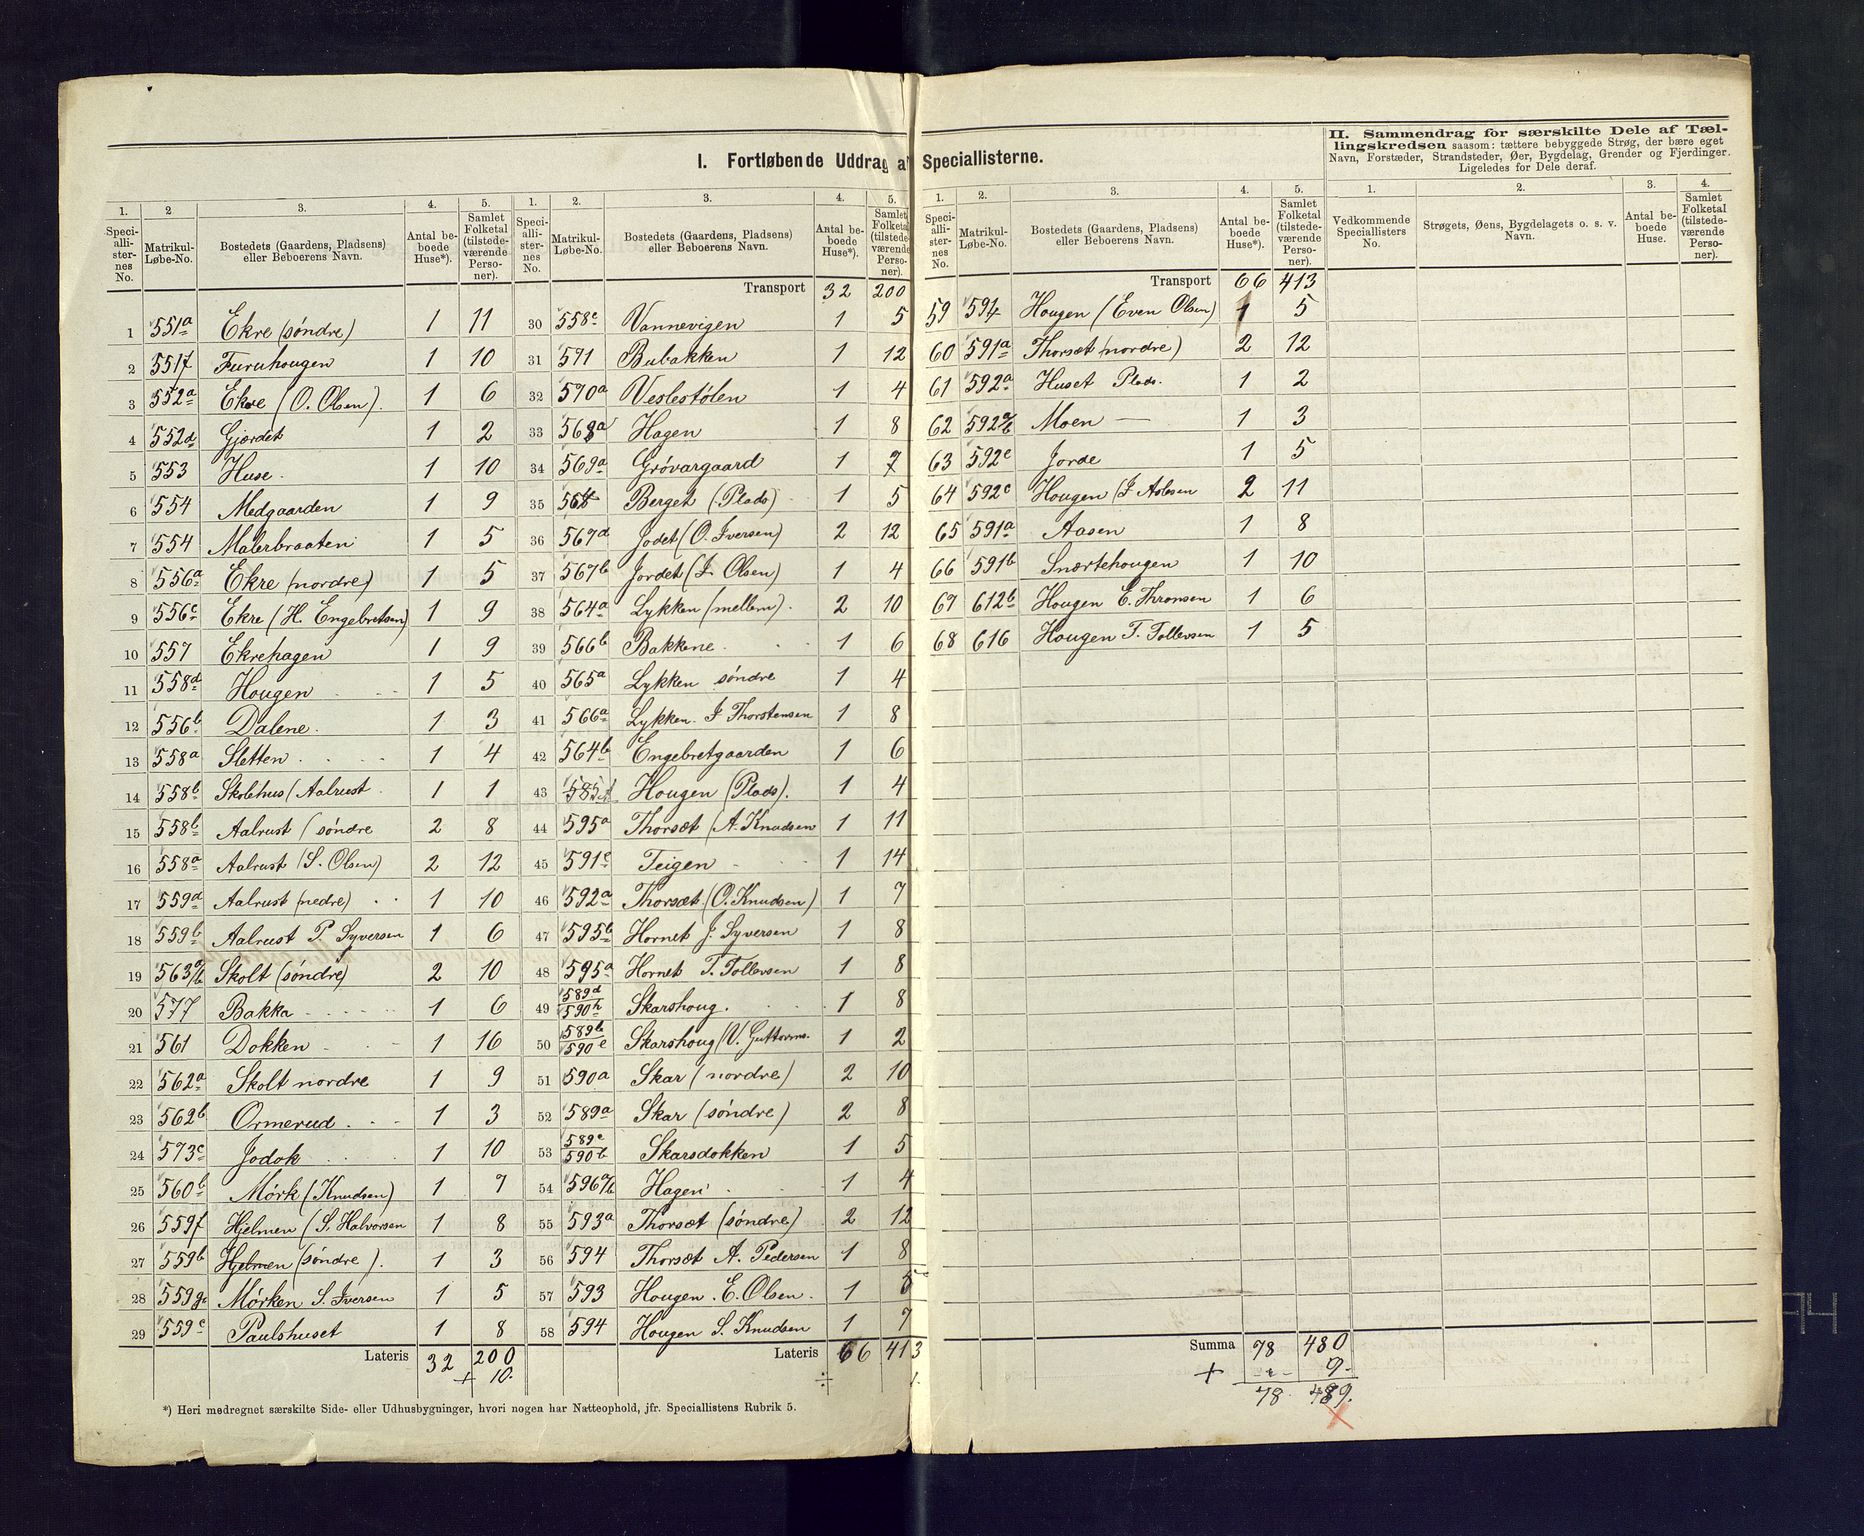 I. Fortløbende Uddrag af Speciallisterne.
1. Speciallisternes No.
2 Matrikul-Løbe-No.
3. Bostedets (Gaardens, Pladsens) eller Beboerens Navn.
4. Antal beboede Huse*).
5. Samlet Folketal (tilstedeværende Personer).
1 551a Ekre (søndre) 1 11
2 551f Furuhougen 1 10
3 552a Ekre (O. Olsen). 1 6
4 552d Gjærdet 1 2
5 553 Huse. 1 10
6 554 Medgaarden 1 9
7 554 Malerbraaten 1 5
8 556a Ekre (nordre) 1 5
9 556c Ekre (H. Engebretsen) 1 9
10 557 Ekrehagen 1 9
11 558d Hougen 1 5
12 556b Dalene. 1 3
13 558a Sletten 1 4
14 558b Skolehus (Aalrust. 1 1
15 558b Aalrust (søndre 2 8
16 558a Aalrust (S. Olsen) 2 12
17 559d Aalrust (nedre) 1 10
18 559b Aalrust P. Syversen 1 6
19 563a/b Skolt (søndre) 2 10
20 577 Bakka 1 6
21 561 Dokken 1 16
22 562a Skolt nordre 1 9
23 562b Ormerud 1 3
24 573c Jodok 1 10
25 560b Mørk (Knudsen) 1 7
26 559f Hjelmen (S. Halvorsen 1 8
27 559b Hjelmen (søndre). 1 3
28 559g Mørken S. Iversen 1 5
29 559c Paulshuset 1 8
Lateris 32 200
+ 10.
*) Heri medregnet særskilte Side- eller Udhusbygninger, hvori nogen har Natteophold, jfr. Speciallistens Rubrik 5.
1. Speciallisternes No.
2. Matrikul-Løbe-No.
3. Bostedets (Gaardens, Pladsens) eller Beboerens Navn.
4. Antal beboede Huse*).
5. Samlet Folketal (tilstedeværende Personer).
Transport 32 200
30 558c Vannevigen 1 5
31 591 Bubakken 1 12
32 570a Veslestølen 1 4
33 568a Hagen 1 8
34 569a Grøvargaard 1 7
35 568 Berget (Plads) 1 5
36 567d Jodet (O. Iversen) 2 12
37 567b Jordet (J. Olsen) 1 4
38 564a Lykken (mellem). 2 10
39 566b Bakkene 1 6
40 565a Lykken søndre 1 4
41 566a Lykken. J Thorstensen 1 8
42 564b Engebretgaarden 1 6
43 585 Hougen (Plads). 1 4
44 595a Thorsæt (A. Knudsen 1 11
45 591c Teigen 1 14
46 592a Thorsæt (O. Knudsen) 1 7
47 595b Hornet J. Syversen 1 8
48 595a Hornet T. Tollevsen 1 8
49 589d 590h Skarshoug. 1 8
50 589b 590e Skarshoug (V. Guttorms. 1 2
51 590a Skar (nordre) 2 10
52 589a Skar (søndre) 2 8
53 589c 590b Skarsdokken 1 5
54 596a/b Hagen 1 4
55 593a Thorsæt (søndre) 2 12
56 594 Thorsæt A. Pedersen 1 8
57 593 Hougen. E. Olsen. 1 5
58 594 Hougen S. Knudsen 1 7
Lateris 66 413
÷ 1.
1. Speciallisternes No.
2. Matrikul-Løbe-No.
3. Bostedets (Gaardens, Pladsens) eller Beboerens Navn.
4. Antal beboede Huse*).
5. Samlet Folketal (tilstedeværende Personer).
Transport 66 413
59 594 Hougen (Even Olsen) 1 5
60 591a Thorsæt (nordre) 2 12
61 592a Huset Plads. 1 2
62 592a/b Moen — 1 3
63 592c Jorde 1 5
64 592c Hougen (J Aslesen 2 11
65 591a Aasen 1 8
66 591b Snærtehougen 1 10
67 612b Hougen E. Thronsen 1 6
68 616 Hougen T. Tollevsen 1 5
Summa 78 480
+ - - 9.
78. 489.
II. Sammendrag for særskilte Dele af Tællingskredsen saasom: tættere bebyggede Strøg, der bære eget
Navn, Forstæder, Strandsteder, Øer, Bygdelag, Grender og Fjerdinger.
Ligeledes for Dele deraf.
1. Vedkommende Speciallisters No.
2. Strøgets, Øens, Bygdelagets o. s. v. Navn.
3. Antal beboede Huse.
4. Samlet Folketal (tilstedeværende Personer).